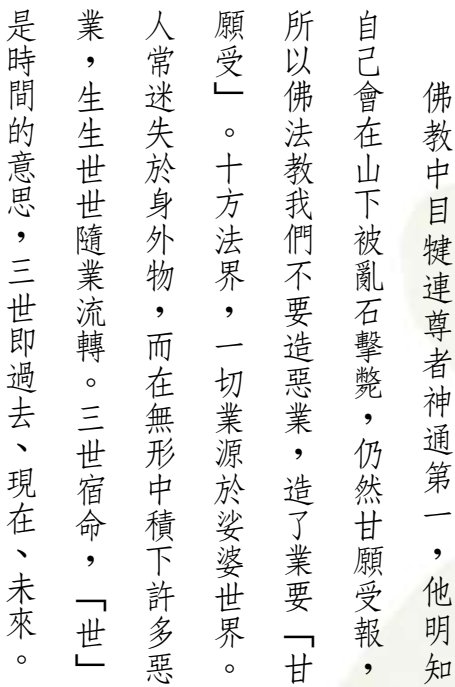 佛教中目犍連尊者神通第一，他明知
自己會在山下被亂石擊斃，仍然甘願受報，
所以佛法教我們不要造惡業，造了業要「甘
願受」。十方法界，一切業源於娑婆世界。
人常迷失於身外物，而在無形中積下許多惡
業，生生世世隨業流轉。三世宿命，「世」
是時間的意思，三世即過去、現在、未來。